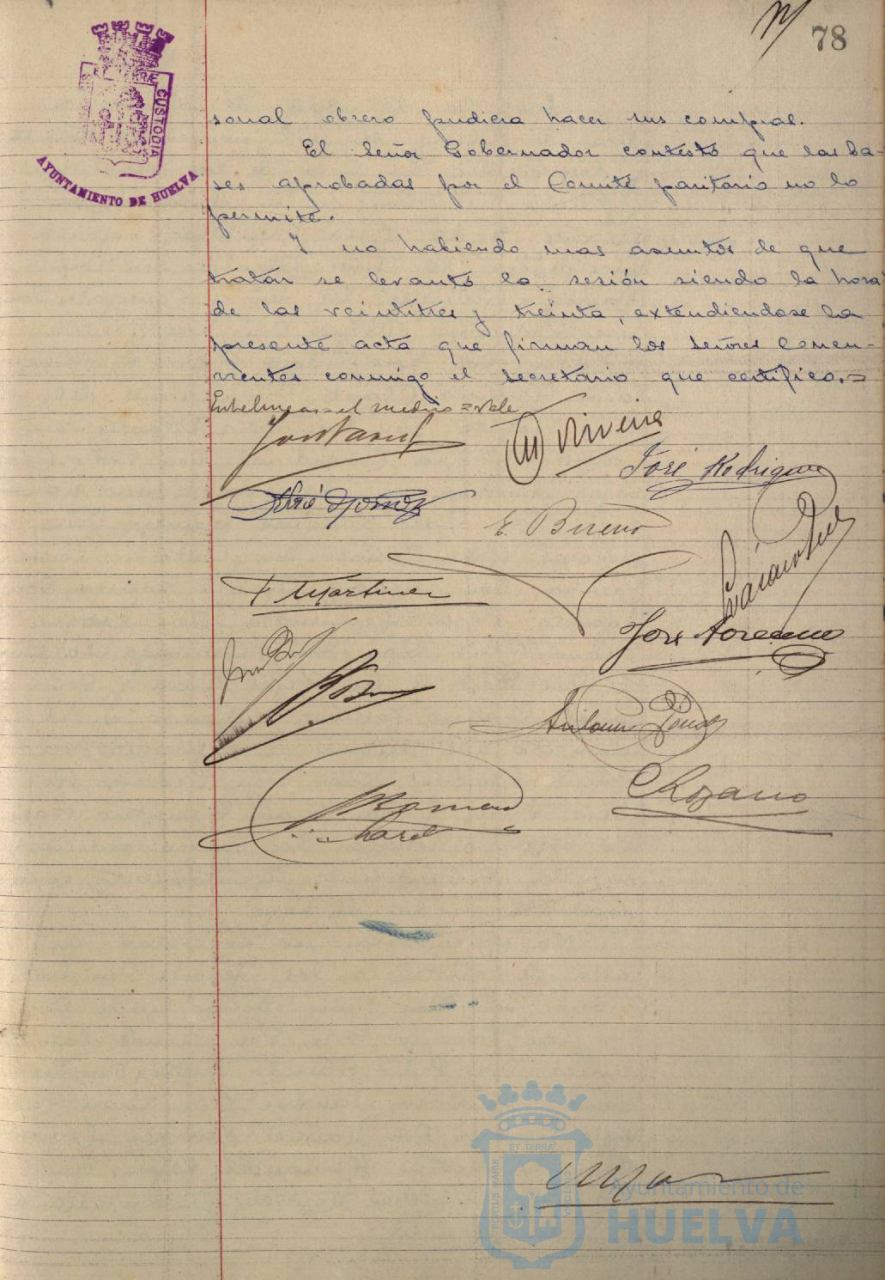 78
CUSTODIA
AYUNTAMIENTO DE HUELVA
sonal obrero pudiera hacer sus compras.
El Señor Gobernador contestó que las ba-
ses aprobadas por el Comité paritario no lo
permite.
Y no habiendo mas asuntos de que
tratar se levantó la sesión siendo la hora
de las veintitres y treinta, extendiendose la
presente acta que firman los señores Concu-
rrentes conmigo el secretario que certifico.=
Entrelineas = el medio = vale
José Rodriguez
E. Bueno
F Martinez
José
Antonio
Lozano
ET TERRÆ
PORTUS MARIS
CUSTODIA
Ayuntamiento de
HUELVA